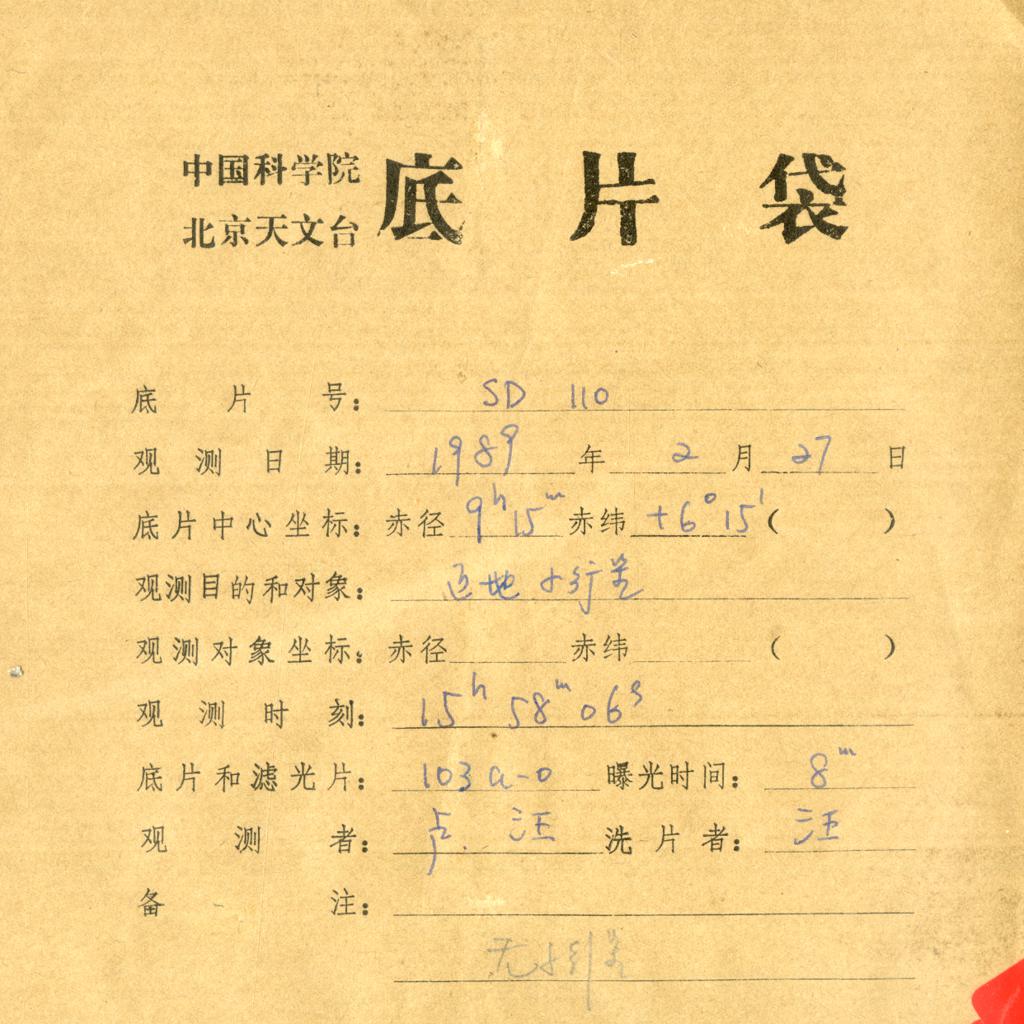 中国科学院
北京天文台
底片袋
底片号： SD 110
观测日期： 1989 年 2 月 27 日
底片中心坐标： 赤径 9h 15m 赤纬 +6°15′ （ ）
观测目的和对象： 近地小行星
观测对象坐标： 赤径 赤纬 （ ）
观测时刻： 15h 58m 06s
底片和滤光片： 103a-O 曝光时间： 8m
观测者： 卢 汪 洗片者： 汪
备注：
无小行星